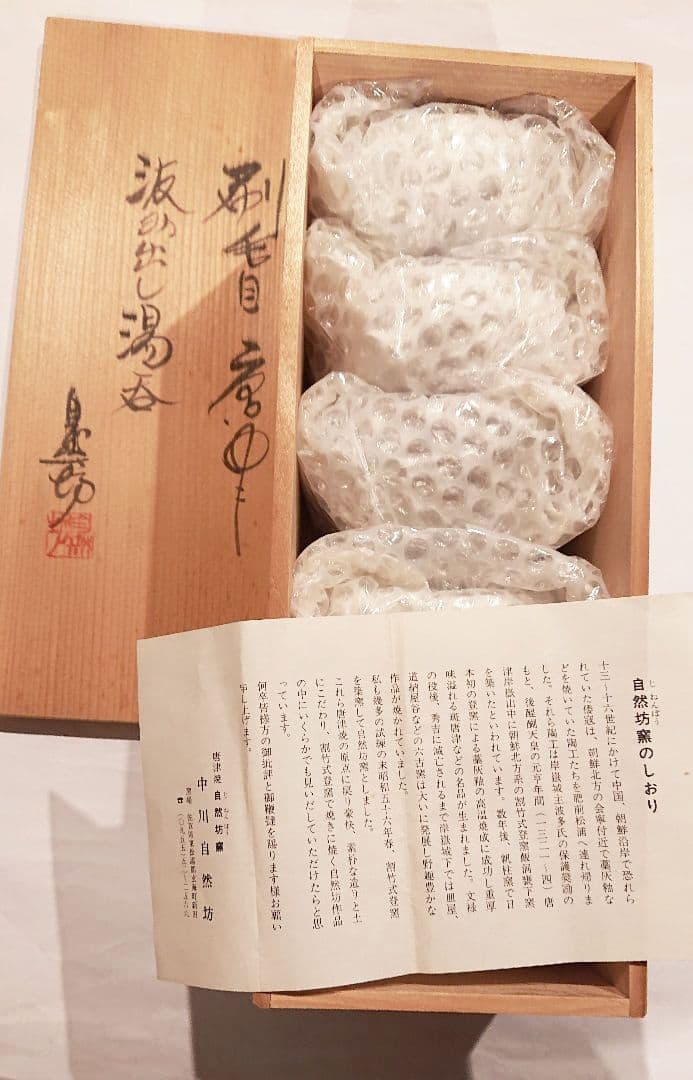 刷毛目 唐津
汲み出し湯呑
自然坊
じねんぼう
自然坊窯のしおり
十三～十六世紀にかけて中国、朝鮮沿岸で恐れら
れていた倭寇は、朝鮮北方の会寧付近で藁灰釉な
どを焼いていた陶工たちを肥前松浦へ連れ帰りま
した。それら陶工は岸嶽城主波多氏の保護奨励の
もと、後醍醐天皇の元亨年間（一三二一～四）唐
津岸嶽山中に朝鮮北方系の割竹式登窯飯洞甕下窯
を築いたといわれています。数年後、帆柱窯で日
本初の登窯による藁灰釉の高温焼成に成功し重厚
味溢れる斑唐津などの名品が生まれました。文禄
の役後、秀吉に滅亡されるまで岸嶽城下では皿屋、
道納屋谷などの六古窯は大いに発展し野趣豊かな
作品が焼かれていました。
私も幾多の試練の末昭和五十六年春、割竹式登窯
を築窯して自然坊窯としました。
これら唐津焼の原点に戻り豪快、素朴な造りと土
にこだわり、割竹式登窯で焼きに焼く自然坊作品
の中にいくらかでも見いだしていただけたらと思
っています。
何卒皆様方の御批評と御鞭撻を賜ります様お願い
申し上げます。
唐津焼 自然坊窯
じねんぼう
中川自然坊
窯場 佐賀県東松浦郡玄海町新田